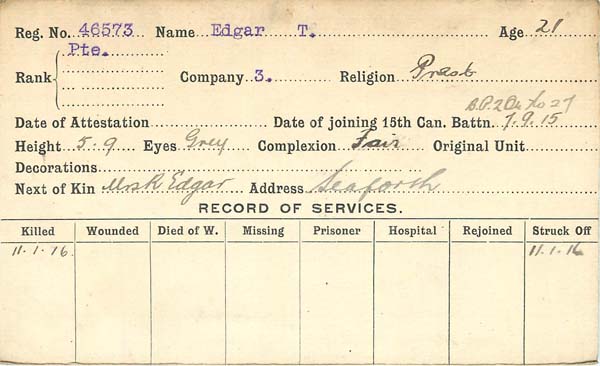 Reg. No. 46573 Name Edgar T. Age 21
Pte.
Rank Company 3. Religion Presb
B.P. 2 De to 27
Date of Attestation Date of joining 15th Can. Battn. 7.9.15
Height 5.9 Eyes Grey Complexion Fair Original Unit
Decorations
Next of Kin Mrs R Edgar Address Seaforth
RECORD OF SERVICES.
Killed Wounded Died of W. Missing Prisoner Hospital Rejoined Struck Off
11.1.16. 11.1.16